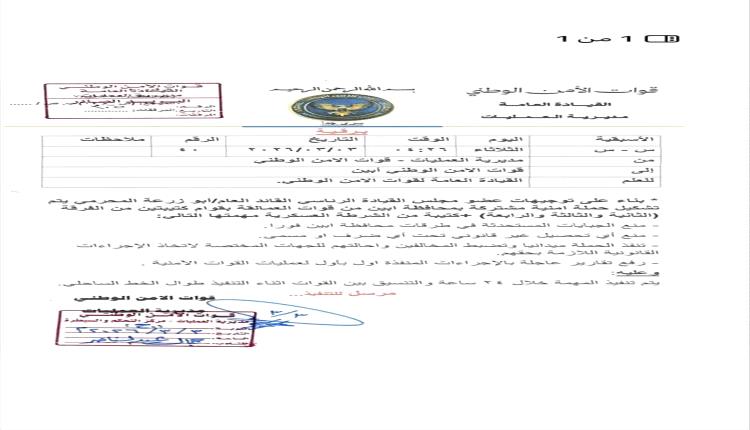 1 من 1
بسم الله الرحمن الرحيم
قوات الأمن الوطني
القيادة العامة
مديرية العمليات
قوات الأمن الوطني
القيادة العامة
برقية
الأسبقية اليوم الوقت التاريخ الرقم ملاحظات
س - س الثلاثاء ٠٤:٢٦ ٢٠٢٦/٠٣/٠٣ ٤٠
من مديرية العمليات - قوات الامن الوطني
إلى قوات الامن الوطني أبين
للعلم القيادة العامة لقوات الامن الوطني.
* بناء على توجيهات عضو مجلس القيادة الرئاسي القائد العام/ابو زرعة المحرمي يتم
تشكيل حملة امنية مشتركة بمحافظة ابين من قوات العمالقة بقوام كتيبتين من الفرقة
(الثانية والثالثة والرابعة) +كتيبة من الشرطة العسكرية مهمتها التالي:
- منع الجبايات المستحدثة في طرقات محافظة ابين فورا.
- منع أي تحصيل غير قانوني تحت أي ظرف او مسمى.
- تنفذ الحملة ميدانيا وتضبط المخالفين واحالتهم للجهات المختصة لاتخاذ الاجراءات
القانونية اللازمة بحقهم.
- رفع تقارير عاجلة بالإجراءات المنفذة اول باول لعمليات القوات الأمنية .
وعليه:
يتم تنفيذ المهمة خلال ٢٤ ساعة والتنسيق بين القوات اثناء التنفيذ طوال الخط الساحلي.
مرسل للتنفيذ...
قوات الامن الوطني
مديرية العمليات
قوات الأمن الوطني